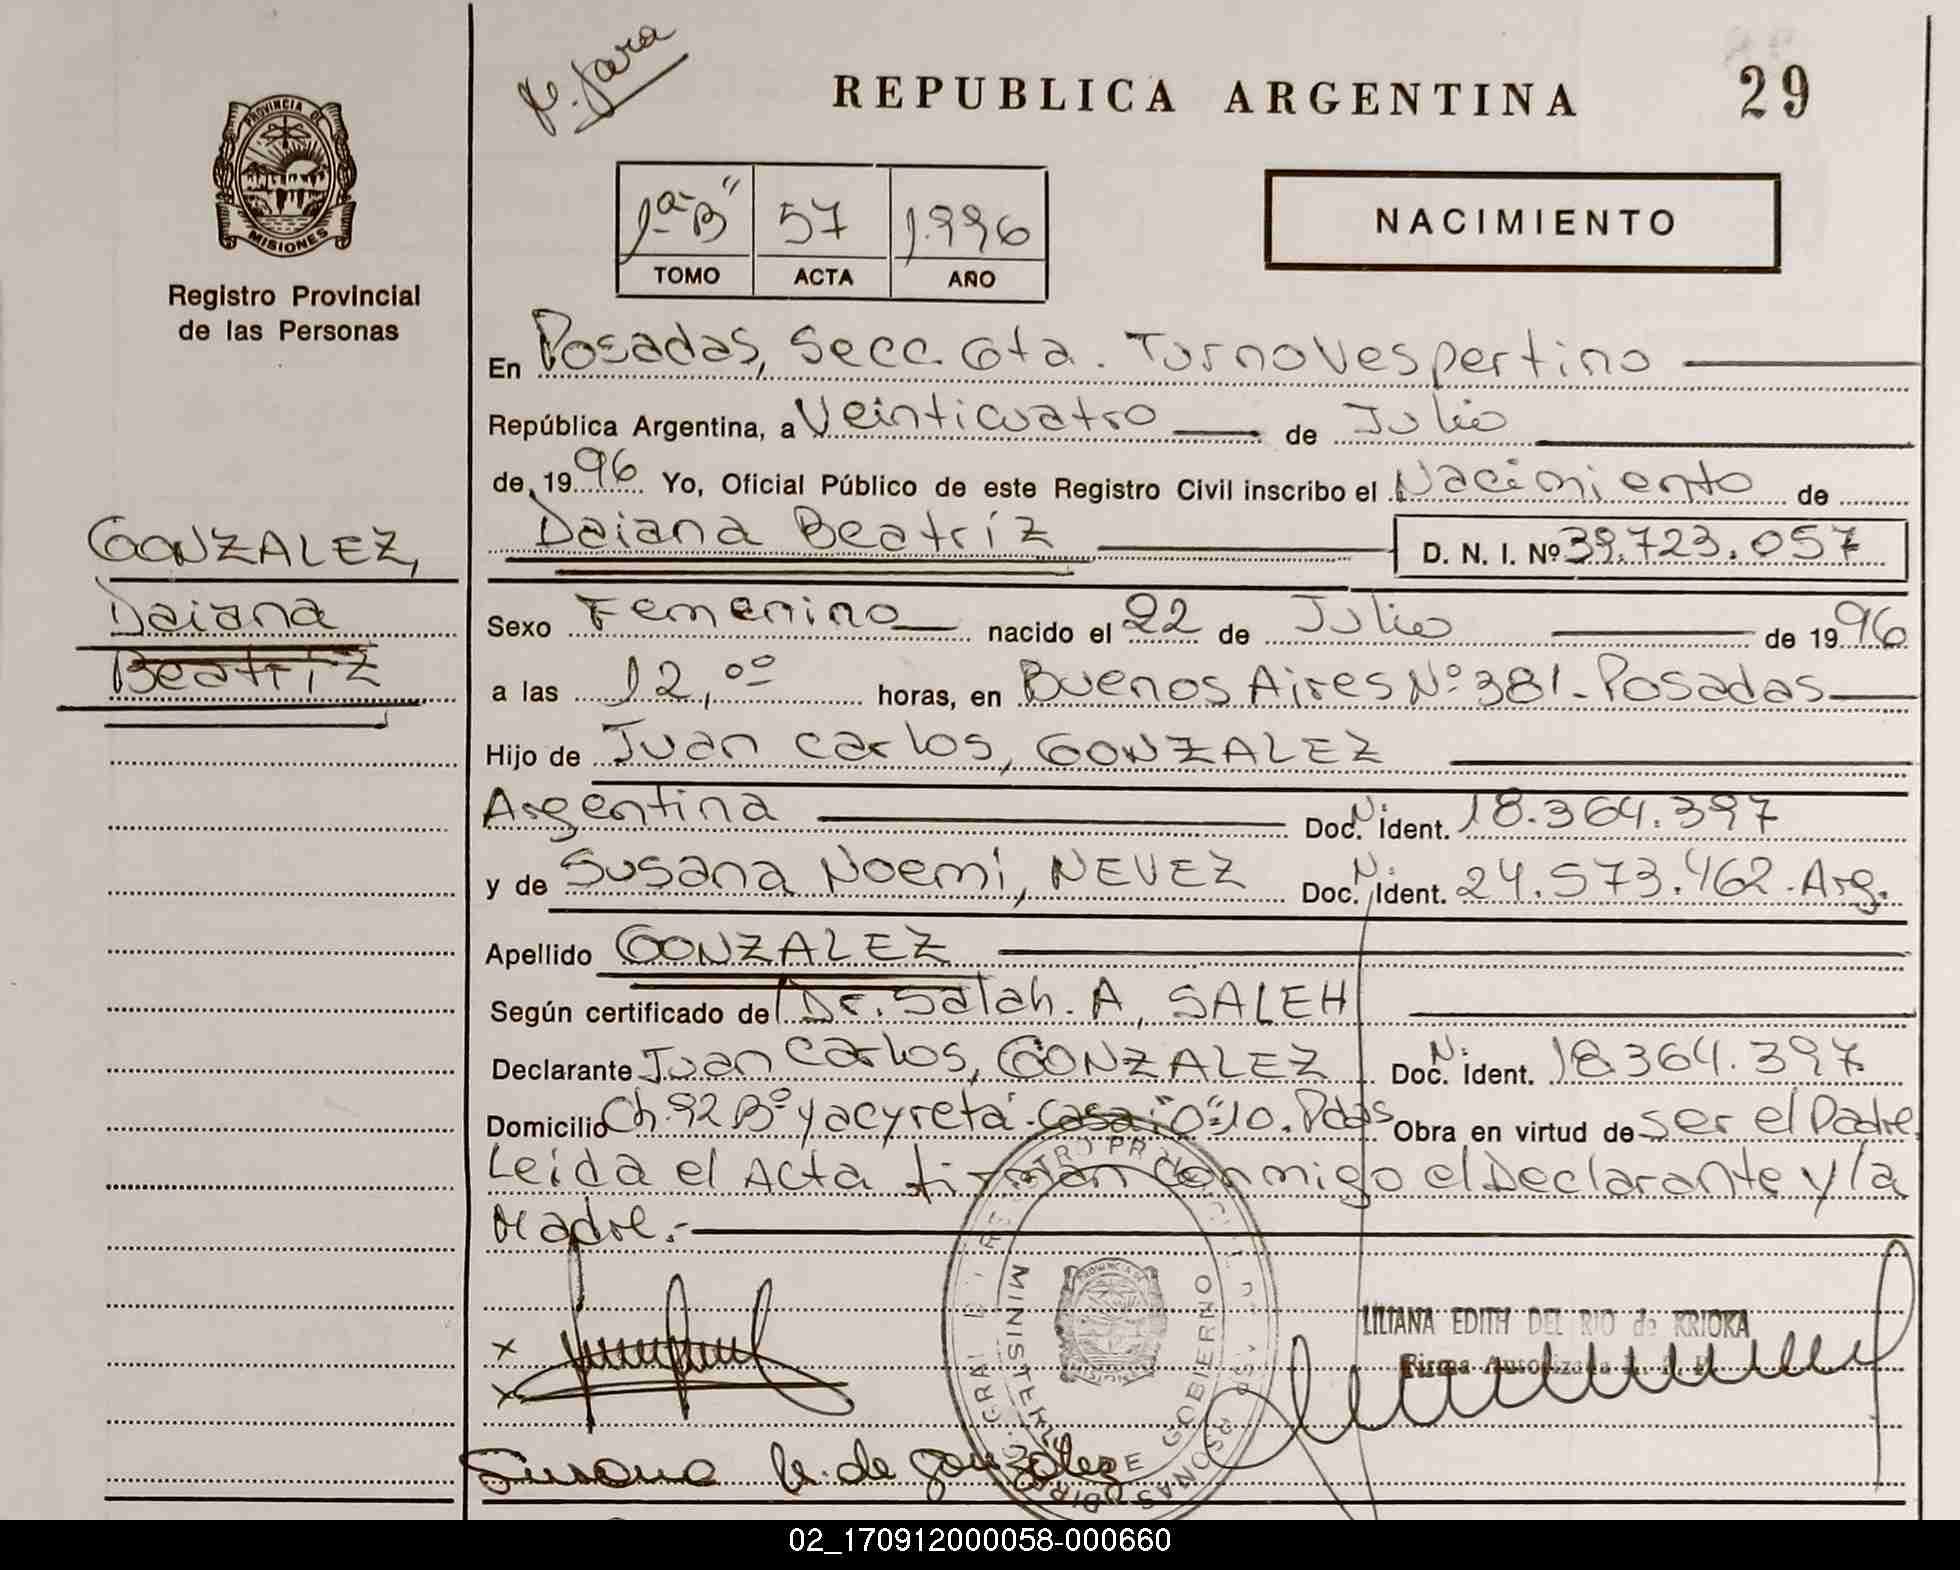 REPUBLICA ARGENTINA
29
PROVINCIA DE
MISIONES
Registro Provincial
de las Personas
1ª "B"
57
1.996
TOMO
ACTA
AÑO
NACIMIENTO
En Posadas, Secc. 6ta. Turno Vespertino
República Argentina, a Veinticuatro de Julio
de 1996 Yo, Oficial Público de este Registro Civil inscribo el Nacimiento de
Daiana Beatríz D. N. I. Nº 39.723.057
GONZALEZ,
Daiana
Beatríz
Sexo Femenino nacido el 22 de Julio de 1996
a las 12,00 horas, en Buenos Aires Nº 381 - Posadas
Hijo de Juan Carlos, GONZALEZ
Argentina Doc. N. Ident. 18.364.397
y de Susana Noemi, NEVEZ Doc. N. Ident. 24.573.462 - Arg.
Apellido GONZALEZ
Según certificado de Dr. Salah. A, SALEH
Declarante Juan Carlos, GONZALEZ Doc. N. Ident. 18364.397
Domicilio Ch. 92 Bº Yacyreta - Casa "O" 10. Pdas Obra en virtud de ser el Padre.
Leida el Acta firman conmigo el Declarante y la
Madre.-
MINISTERIO DE GOBIERNO
LILIANA EDITH DEL RIO de KRIOKA
Firma Autorizada
Susana N. de González
02_170912000058-000660